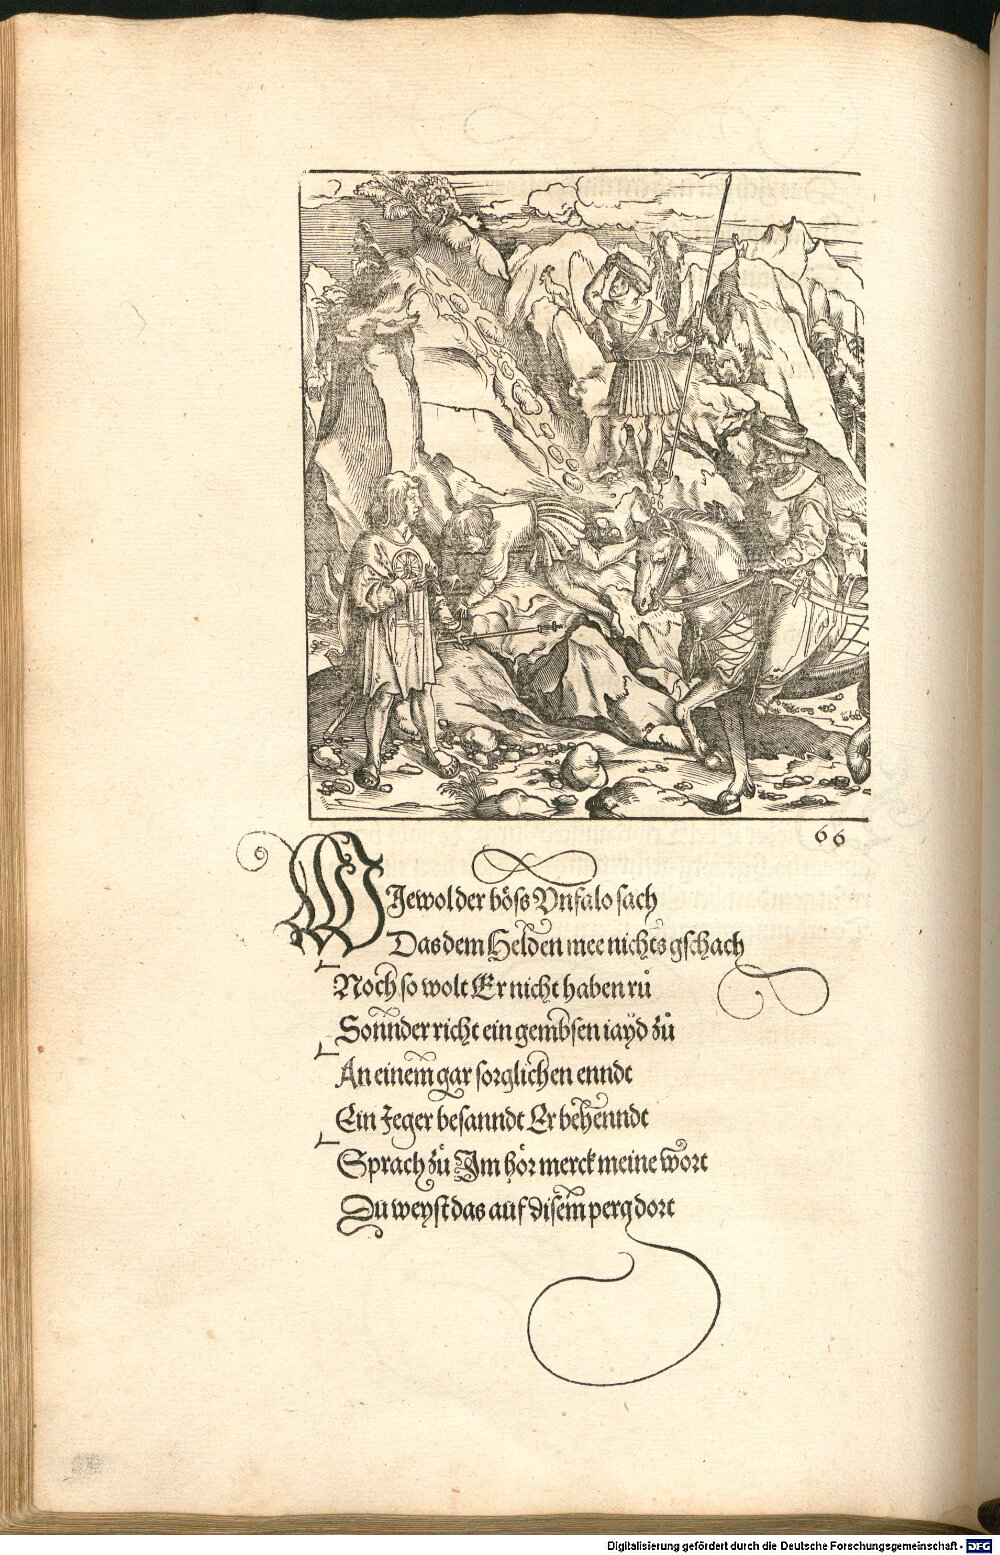 66
WJewol der böss Vnfalo sach
Das dem Helden mee nichts gschach
Noch so wolt Er nicht haben rů
Sonnder richt ein gembsen iayd zů
An einem gar sorglichen enndt
Ein Jeger besanndt Er behenndt
Sprach zů Im hör merck meine wort
Du weyst das auf disem perg dort
Digitalisierung gefördert durch die Deutsche Forschungsgemeinschaft - DFG